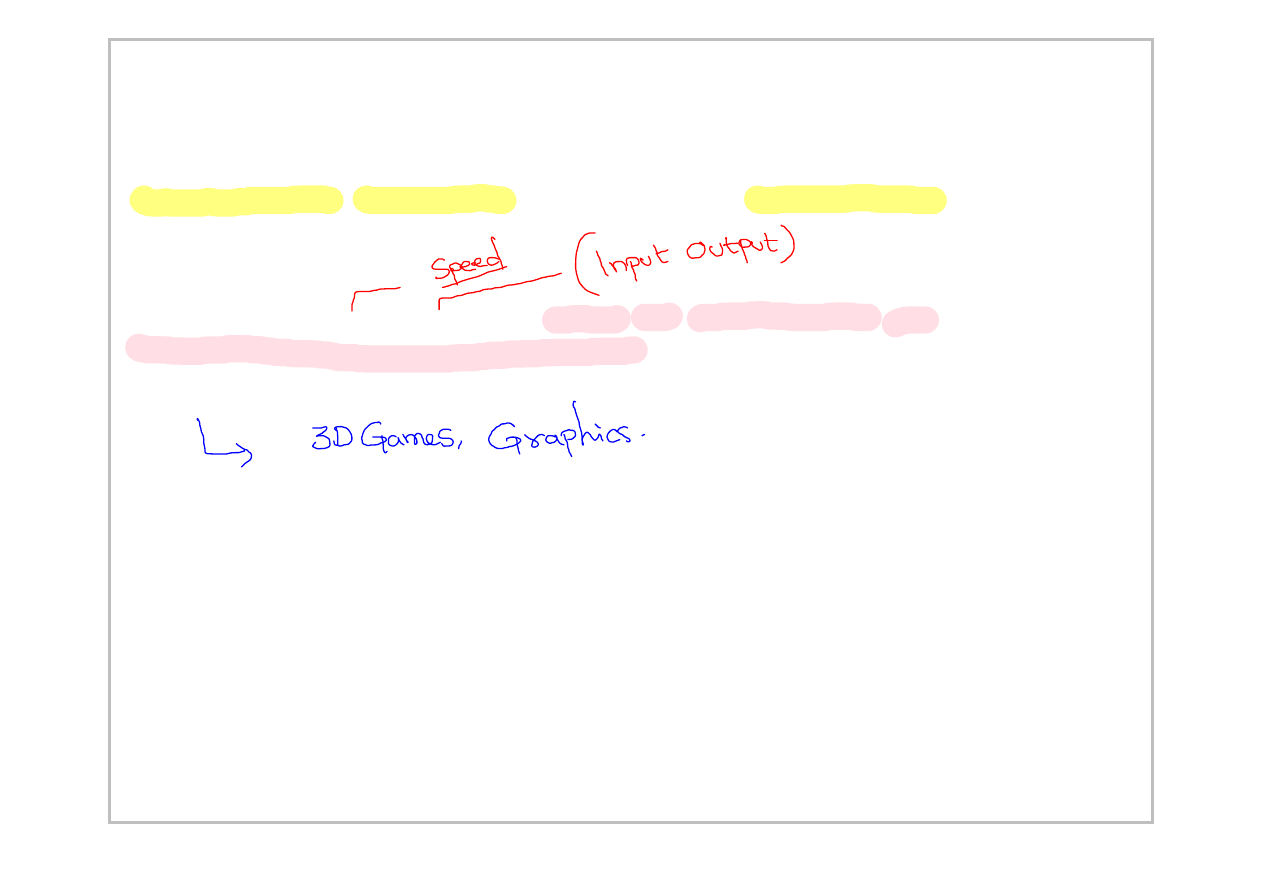 Speed (Input Output)
3D Games, Graphics.